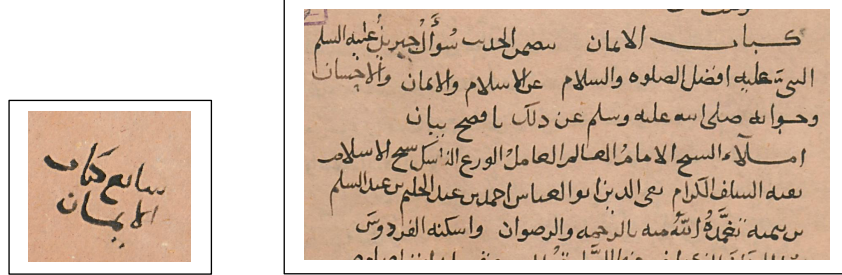 كتاب الايمان يتضمن الحديث سؤال جبريل عليه السلم
النبي عليه افضل الصلوه والسلام عن الاسلام والايمان والاحسان
وجوابه صلى الله عليه وسلم عن ذلك بافصح بيان
املاء الشيخ الامام العالم العامل الورع الناسك شيخ الاسلام
بقية السلف الكرام تقي الدين ابو العباس احمد بن عبد الحليم بن عبد السلم
بن تيمية تغمده الله منه بالرحمه والرضوان واسكنه الفردوس
سابع كتاب
الايمان